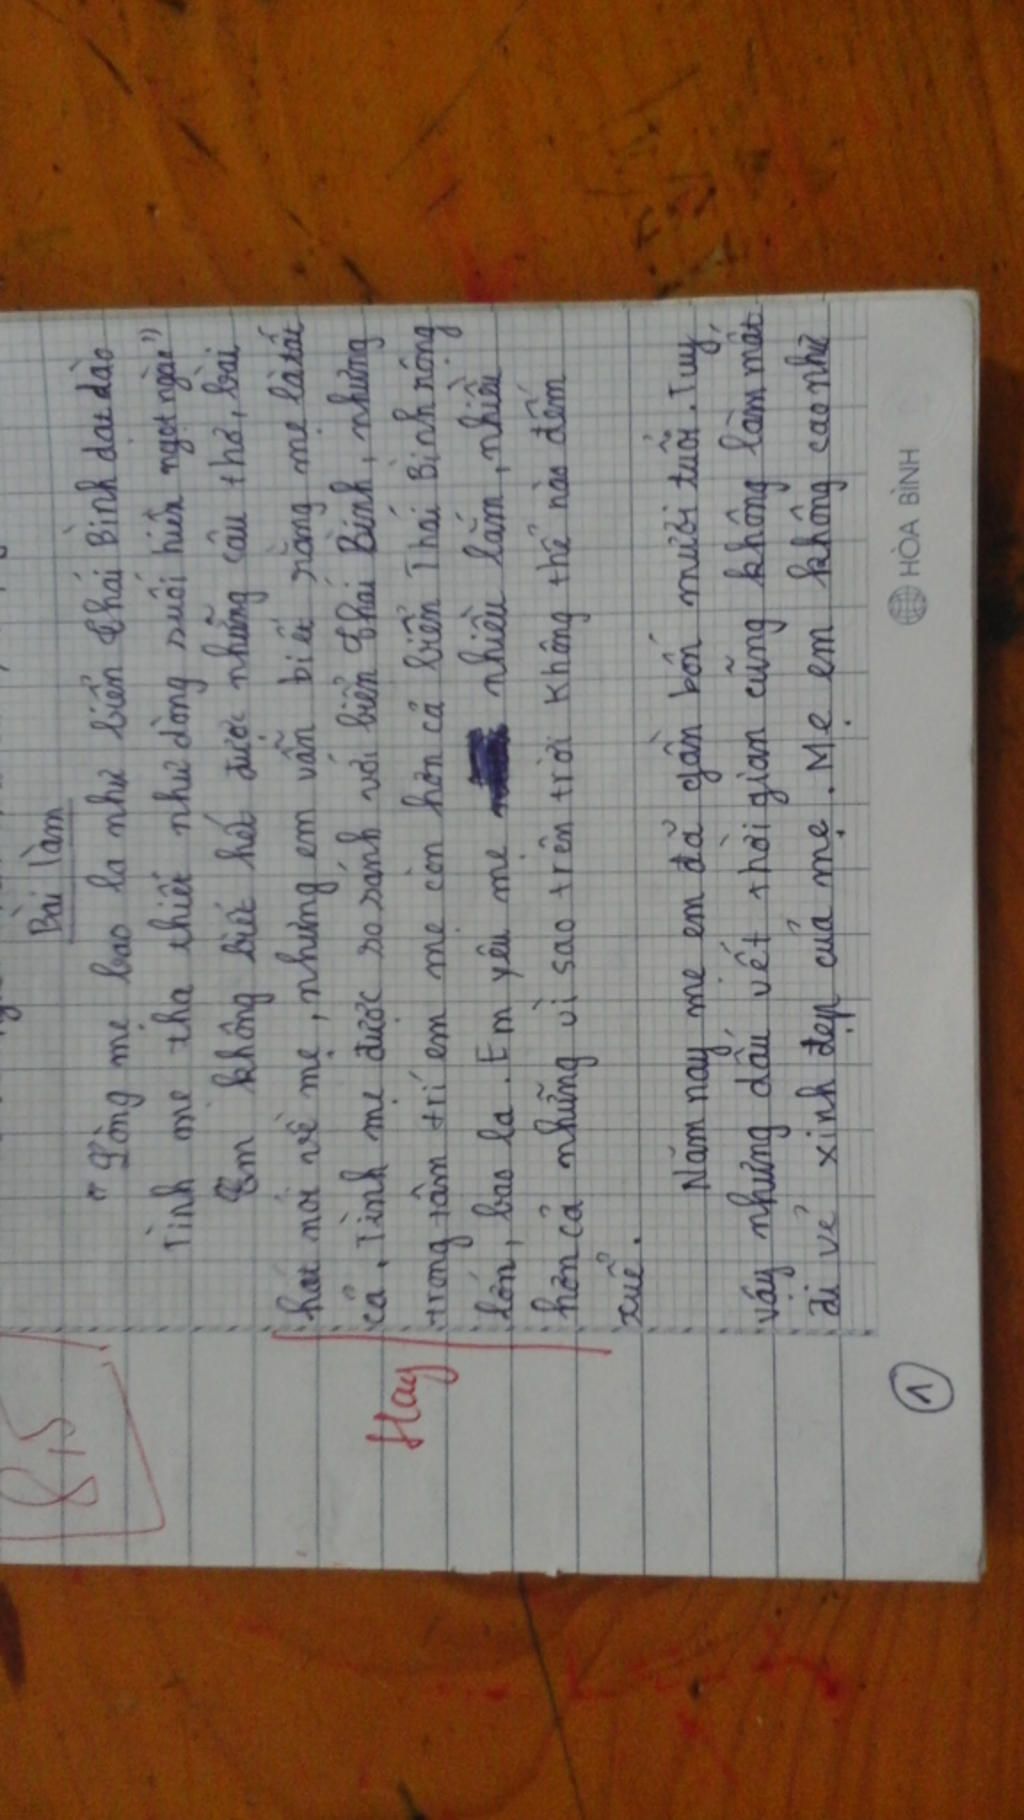 8,5
Bài làm
"Lòng mẹ bao la như biển thái Bình dạt dào
Tình mẹ tha thiết như dòng suối hiền ngọt ngào"
Em không biết hết được những câu thơ, bài
hát nói về mẹ, nhưng em vẫn biết rằng mẹ là tất
cả. Tình mẹ được so sánh với biển thái Bình, nhưng
Hay
trong tâm trí em mẹ còn hơn cả biển Thái Bình rộng
lớn, bao la. Em yêu mẹ nhiều lắm, nhiều
hơn cả những vì sao trên trời không thể nào đếm
xuể.
Năm nay mẹ em đã gần bốn mươi tuổi. Tuy
vậy nhưng dấu vết thời gian cũng không làm mất
đi vẻ xinh đẹp của mẹ. Mẹ em không cao như
1
HÒA BÌNH